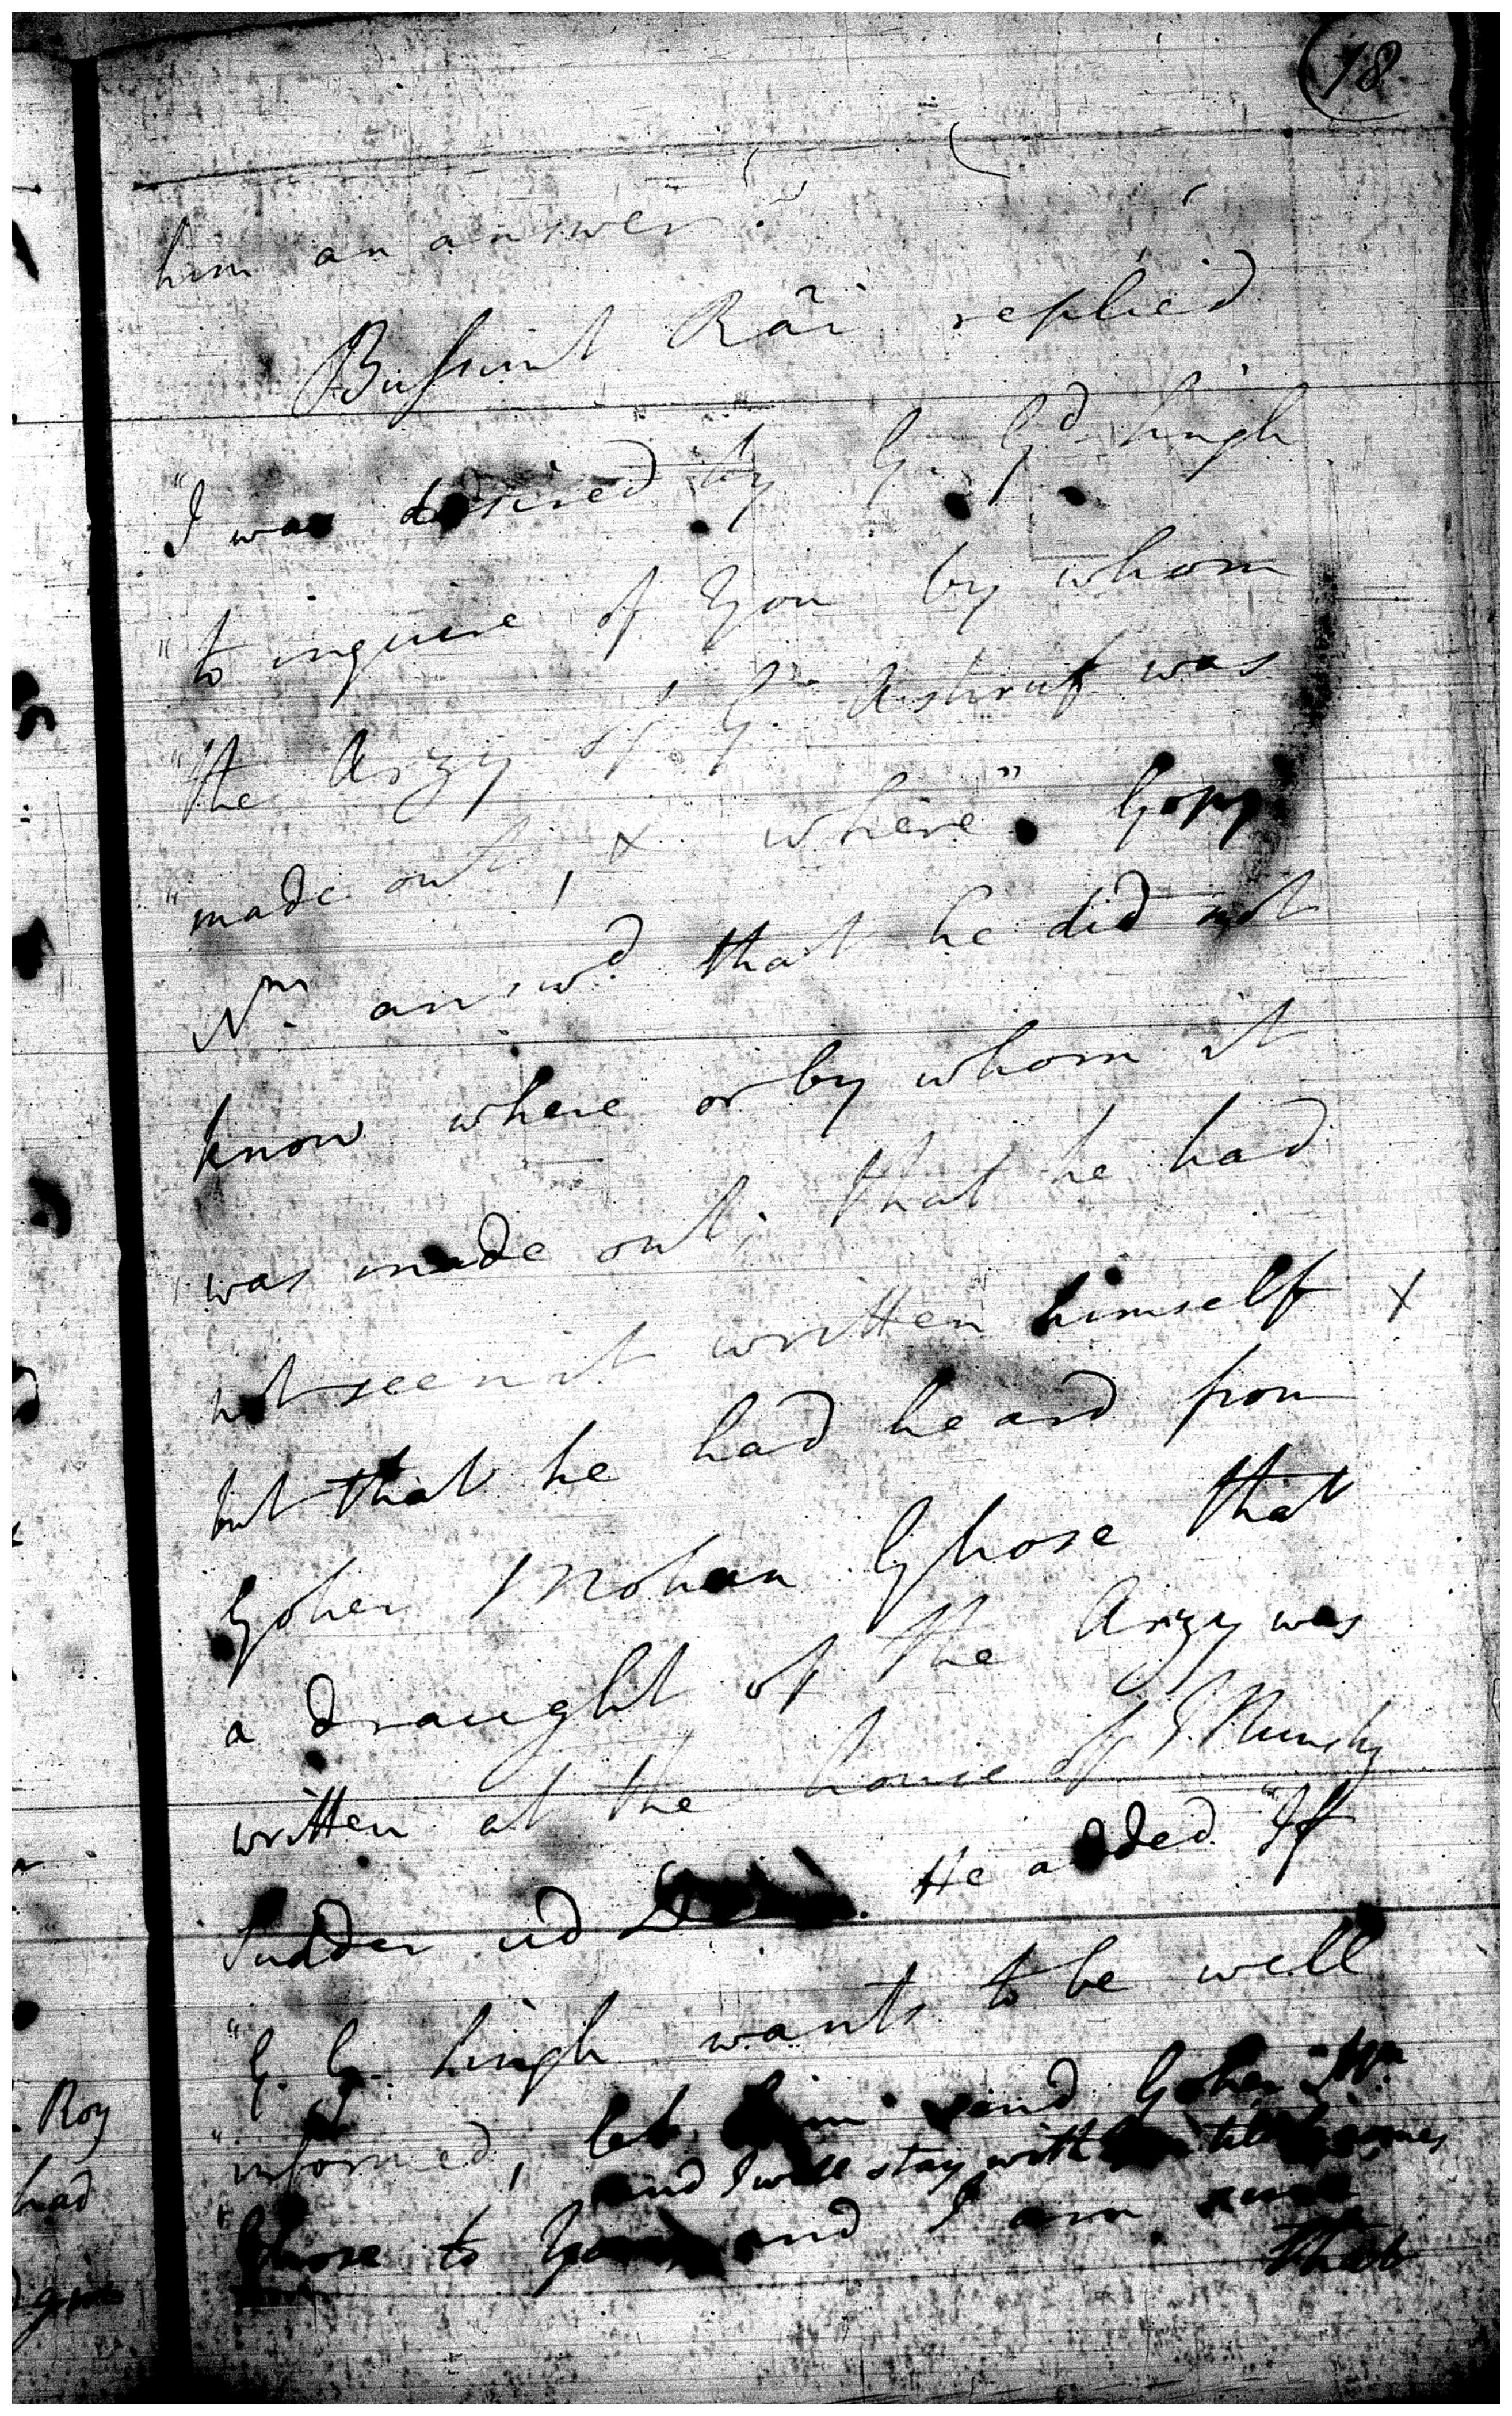 18
him an answer."
Bussunt Rāi replied
"I was desired by G. Gd. Singh
"to inquire of you by whom
"the Arzy of G. Ashruf was
"made out, & where". Gopy
Nm. answd. that he did not
know where or by whom it
was made out; that he had
not seen it written himself X
but that he had heard from
Goher Mohan Ghose that
a draught of the Arzy was
written at the house of Munshy
Sudder ud . He added "If
"G. G. Singh wants to be well
"informed, let him send Goher Mn.
and I will stay with till comes
"Ghose to and I am sure
that
Roy
had